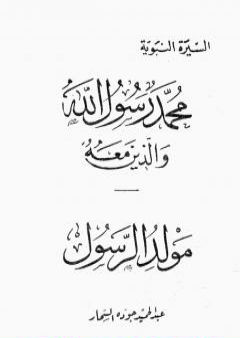 السيرة النبوية
محمد رسول الله
والذين معه
مولد الرسول
عبد الحميد جوده السحار